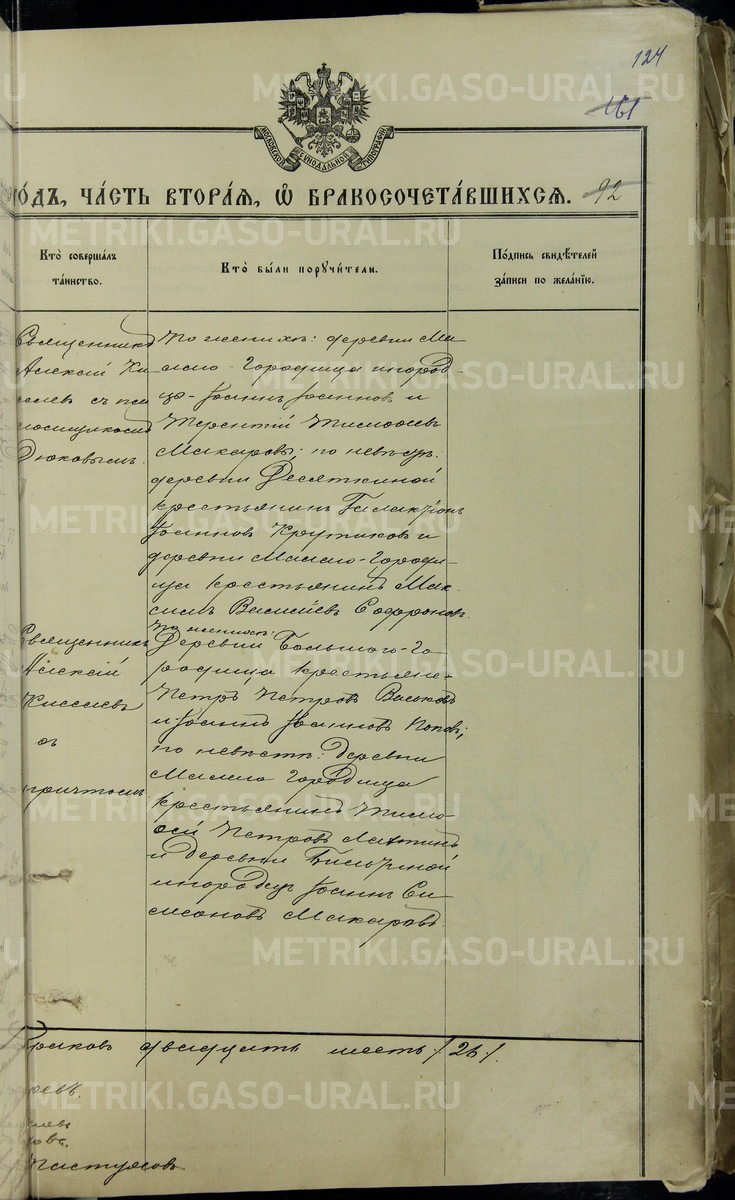 124
161
МОСКОВСКОЙ СѴНОДАЛЬНОЙ ТИПОГРАФІИ
ГО́ДЪ, ЧА́СТЬ ВТОРА́Я, Ѡ҆ БРАКОСОЧЕТА́ВШИХСЯ. 92
Кто̀ соверша́лъ
та́инство.
Кто̀ бы́ли порꙋчи́тели.
По́дпись свидѣ́телей
за́писи по жела́нїю.
Священникъ
Алексій Ки
селевъ съ пса
ломщикомъ
Дюковымъ.
По женихѣ: деревни Ма
лаго-Городища инород-
цы-Іоаннъ Іоанновъ и
Терентій Тимофеевъ
Макаровы; по невѣстѣ:
деревни Десяткиной
крестьянинъ
Іоанновъ Крутиковъ и
деревни Малаго-Городи-
ща крестьянинъ Мак-
симъ Васильевъ Софроновъ.
Священникъ
Алексій
Киселевъ
съ
причтомъ.
По женихѣ:
Деревни Большого-Го-
родища крестьяне-
Петръ Петровъ Васьковъ
и Іоаннъ Іоанновъ Поповъ;
по невѣстѣ: деревни
Малаго Городища
крестьянинъ Тимо-
фей Петровъ
и деревни
инородецъ Іоаннъ Си-
меоновъ Макаровъ.
браковъ двадцать шесть /26/.
Пастуховъ
METRIKI.GASO-URAL.RU